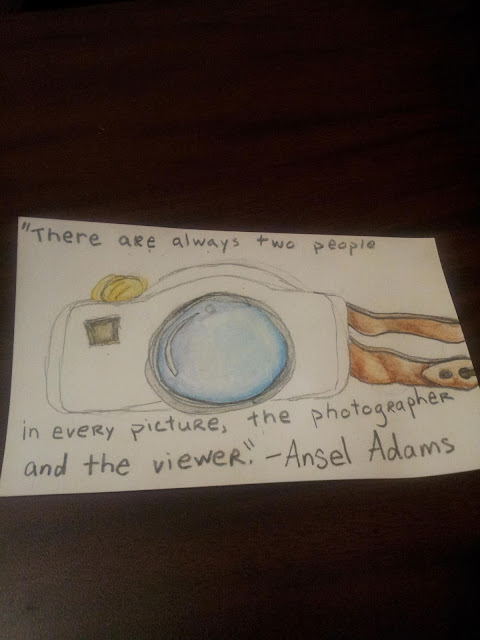 "There are always two people
in every picture, the photographer
and the viewer." -Ansel Adams